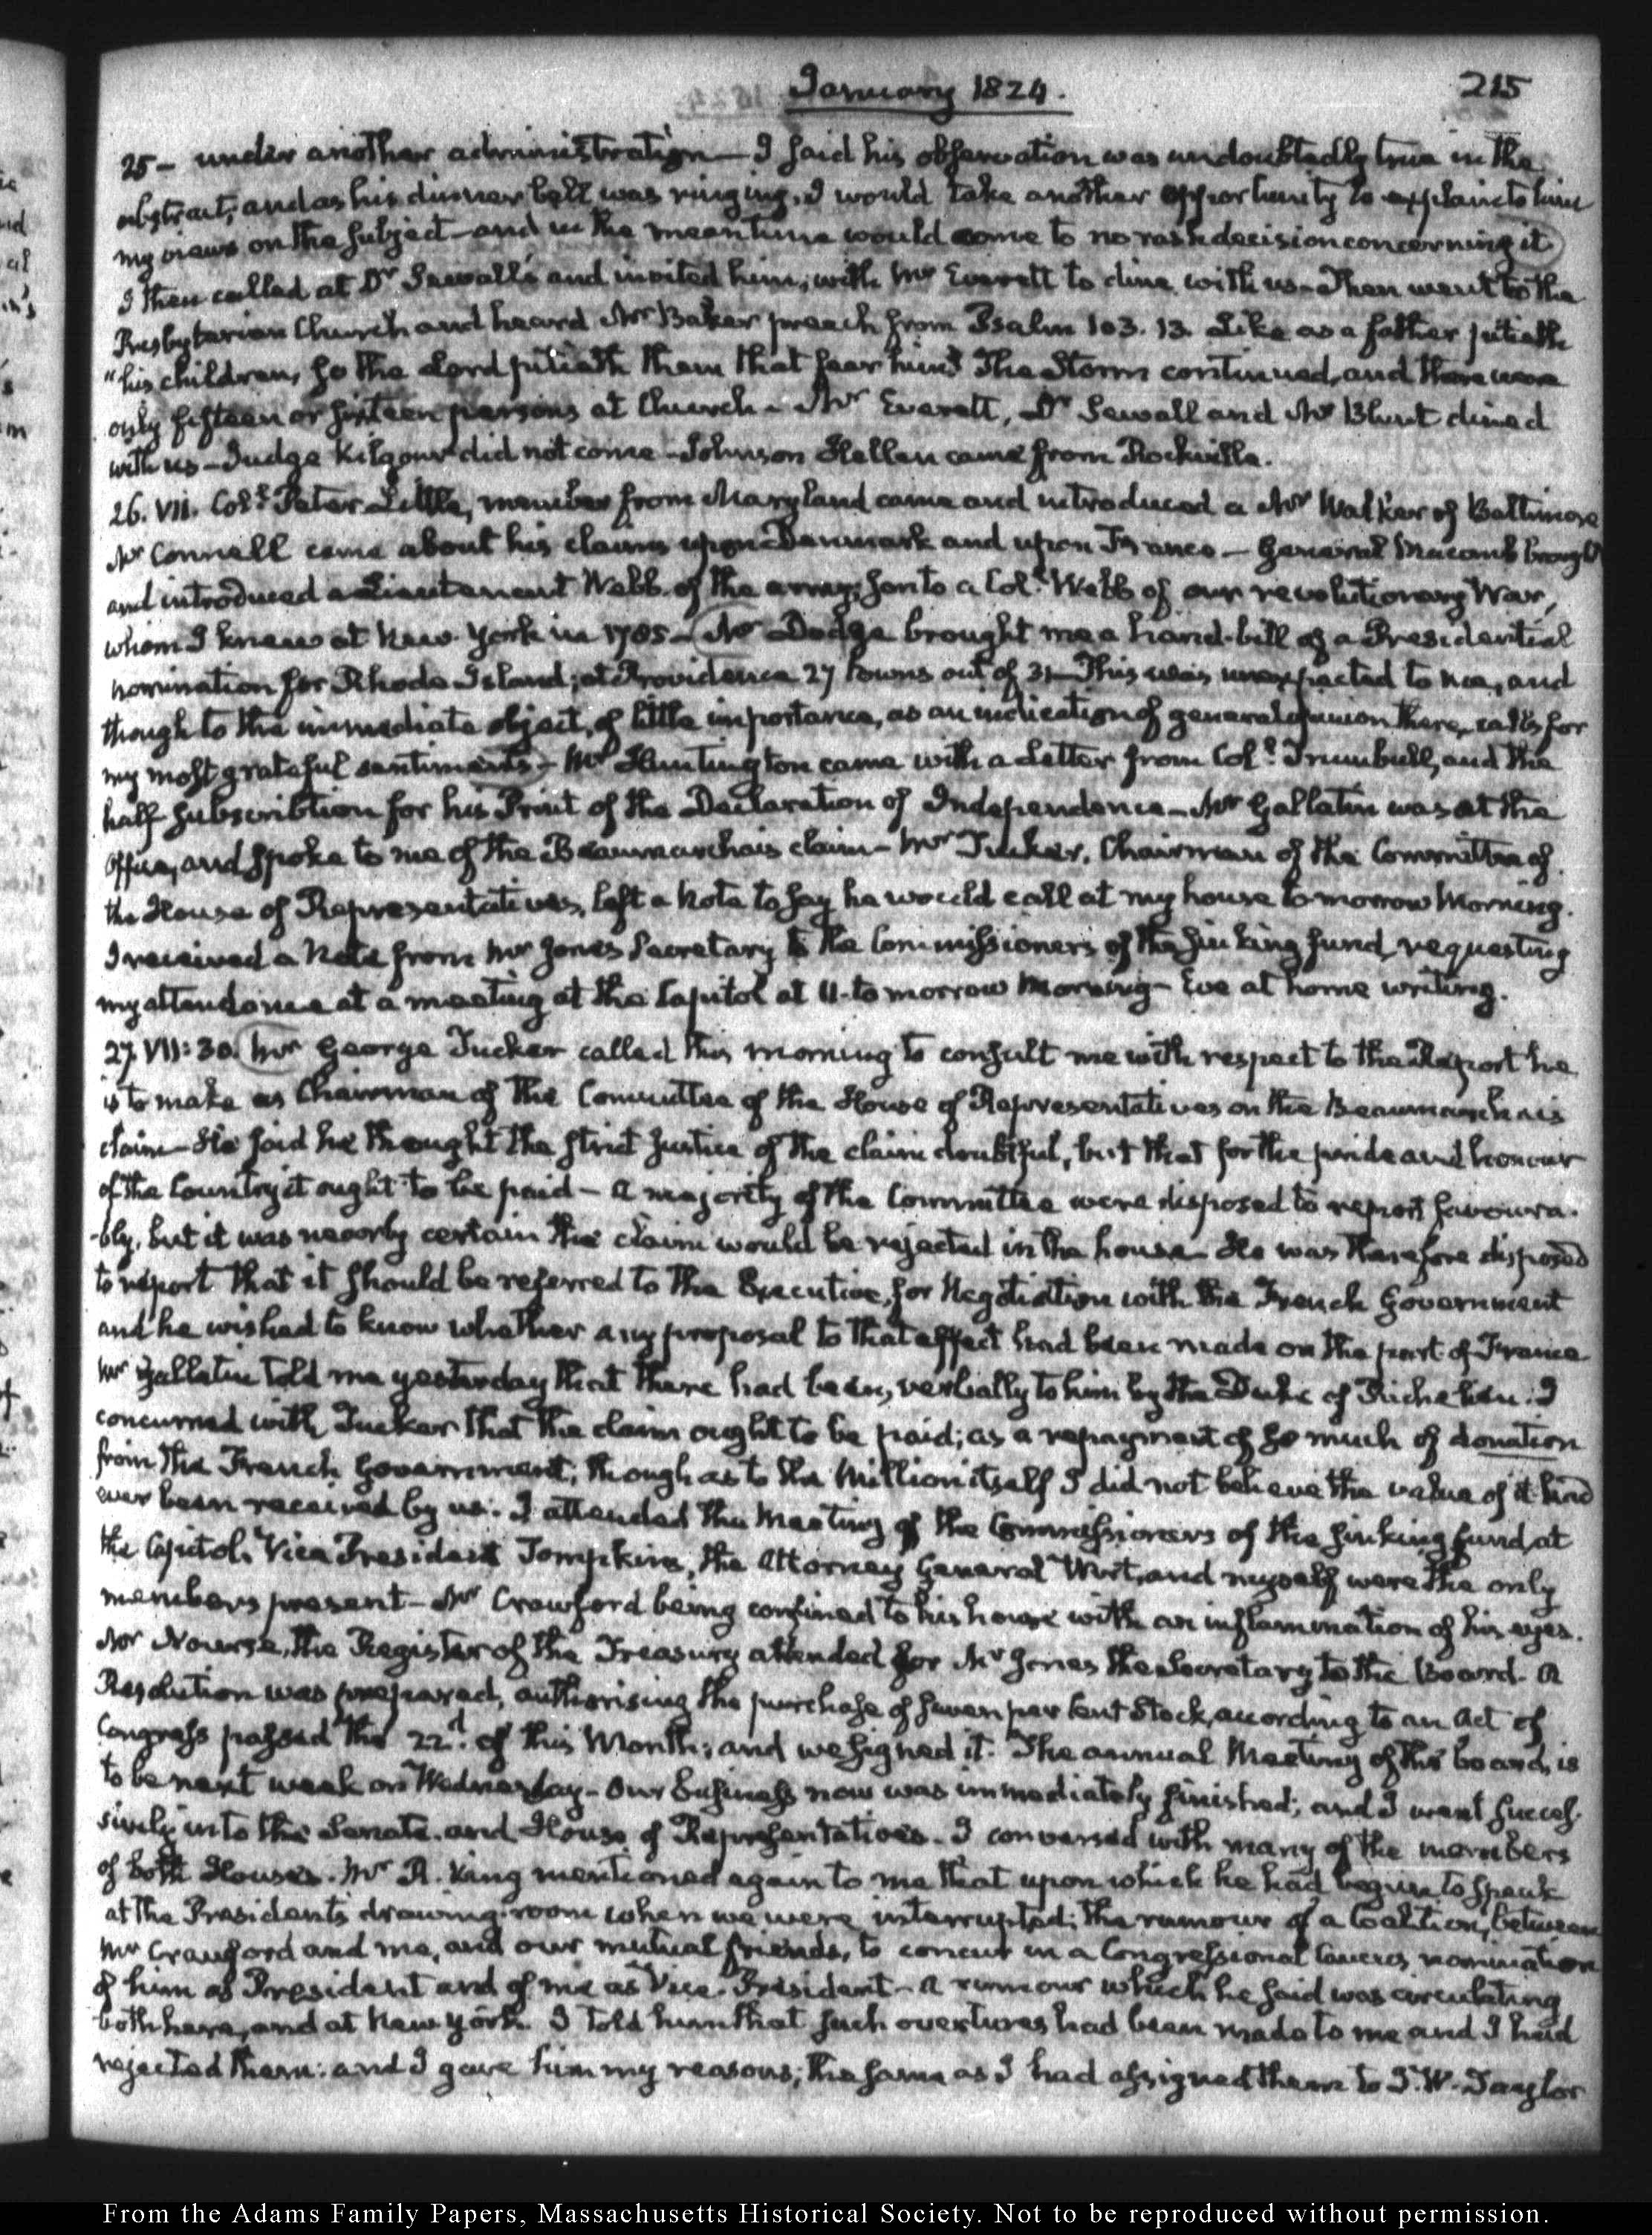 January 1824.
215
25 - under another administration - I said his observation was undoubtedly true in the
abstract, and as his dinner bell was ringing, I would take another opportunity to explain to him
my views on the subject - and in the mean time would come to no rash decision concerning it
I then called at Dr Sewall's and invited him, with Mr Everett to dine with us - Then went to the
Presbyterian Church and heard Mr Baker preach from Psalm 103. 13. Like as a father pitieth
"his children, so the Lord pitieth them that fear him" The Storm continued, and there were
only fifteen or sixteen persons at Church - Mr Everett, Dr Sewall and Mr Blunt dined
with us - Judge Kilgour did not come - Johnson Hellen came from Rockville.
26. VII. Coll. Peter Little, member from Maryland came and introduced a Mr Walker of Baltimore
Mr Connell came about his claims upon Denmark and upon France - General Macomb brought
and introduced a Lieutenant Webb of the army, son to a Col. Webb of our revolutionary War,
whom I knew at New-York in 1785 - Mr Dodge brought me a hand-bill of a Presidential
nomination for Rhode Island; at Providence 27 towns out of 31 - This was unexpected to me, and
though to the immediate object, of little importance, as an indication of general opinion there, calls for
my most grateful sentiments - Mr Huntington came with a Letter from Coll. Trumbull, and the
half subscribtion for his Print of the Declaration of Independence - Mr Gallatin was at the
Office, and spoke to me of the Beaumarchais claim - Mr Tucker, Chairman of the Committee of
the House of Representatives, left a Note to say he would call at my house to-morrow Morning.
I received a Note from Mr Jones Secretary to the Commissioners of the sinking fund, requesting
my attendance at a meeting at the Capitol at 11. to morrow Morning - Eve at home writing.
27. VII: 30. Mr George Tucker called this morning to consult me with respect to the Report he
is to make as Chairman of the Committee of the House of Representatives on the Beaumarchais
claim - He said he thought the strict justice of the claim doubtful, but that for the pride and honour
of the Country it ought to be paid - A majority of the Committee were disposed to report favoura-
-bly, but it was nearly certain the claim would be rejected in the house - He was therefore disposed
to report that it should be referred to the Executive, for Negotiation with the French Government
and he wished to know whether any proposal to that effect had been made on the part of France
Mr Gallatin told me yesterday that there had been, verbally to him by the Duke of Richelieu. I
concurred with Tucker that the claim ought to be paid; as a repayment of so much of donation
from the French Government, though as to the Million itself I did not believe the value of it had
ever been received by us. I attended the Meeting of the Commissioners of the sinking fund, at
the Capitol. Vice President Tompkins, the Attorney General Wirt, and myself were the only
members present - Mr Crawford being confined to his house with an inflammation of his eyes.
Mr Nourse, the Register of the Treasury attended for Mr Jones the Secretary to the Board. A
Resolution was prepared, authorising the purchase of seven per Cent Stock, according to an Act of
Congress passed the 22d. of this Month; and we signed it. The annual Meeting of the board, is
to be next week on Wednesday - Our business now was immediately finished; and I went succes-
sively into the Senate and House of Representatives. I conversed with many of the members
of both Houses. Mr R. King mentioned again to me that upon which he had begun to speak
at the President's drawing-room when we were interrupted; the rumour of a Coalition, between
Mr Crawford and me, and our mutual friends, to concur in a Congressional Caucus nomination
of him as President and of me as Vice-President - A rumour which he said was circulating
both here, and at New York. I told him that such overtures had been made to me and I had
rejected them: and I gave him my reasons; the same as I had assigned them to J. W. Taylor
From the Adams Family Papers, Massachusetts Historical Society. Not to be reproduced without permission.